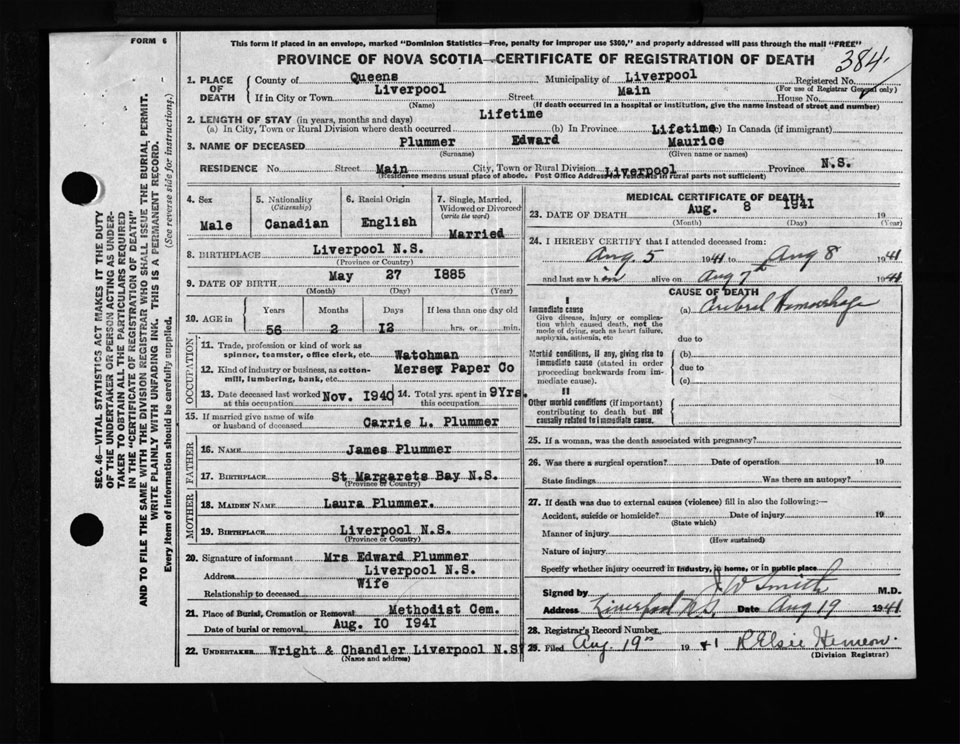 FORM 6
This form if placed in an envelope, marked "Dominion Statistics—Free, penalty for improper use $300," and properly addressed will pass through the mail "FREE"
PROVINCE OF NOVA SCOTIA—CERTIFICATE OF REGISTRATION OF DEATH
384
1. PLACE OF DEATH
County of Queens Municipality of Liverpool Registered No.
(For use of Registrar General only)
If in City or Town Liverpool Street Main House No.
(Name) (If death occurred in a hospital or institution, give the name instead of street and number)
2. LENGTH OF STAY (in years, months and days)
(a) In City, Town or Rural Division where death occurred Lifetime (b) In Province Lifetime (c) In Canada (if immigrant)
3. NAME OF DECEASED Plummer Edward Maurice
(Surname) (Given name or names)
RESIDENCE No. Street Main City, Town or Rural Division Liverpool Province N.S.
(Residence means usual place of abode. Post Office Address for residents in rural parts not sufficient)
4. Sex
Male
5. Nationality
(Citizenship)
Canadian
6. Racial Origin
English
7. Single, Married, Widowed or Divorced
(write the word)
Married
8. BIRTHPLACE Liverpool N.S.
(Province or Country)
9. DATE OF BIRTH May 27 1885
(Month) (Day) (Year)
10. AGE in
Years Months Days If less than one day old
56 2 12 hrs. or min.
OCCUPATION
11. Trade, profession or kind of work as
spinner, teamster, office clerk, etc. Watchman
12. Kind of industry or business, as cotton-
mill, lumbering, bank, etc. Mersey Paper Co
13. Date deceased last worked
at this occupation Nov. 1940
14. Total yrs. spent in
this occupation 9Yrs.
15. If married give name of wife
or husband of deceased Carrie L. Plummer
FATHER
16. NAME James Plummer
17. BIRTHPLACE St Margarets Bay N.S.
(Province or Country)
MOTHER
18. MAIDEN NAME Laura Plummer.
19. BIRTHPLACE Liverpool N.S.
(Province or Country)
20. Signature of informant Mrs Edward Plummer
Address Liverpool N.S.
Relationship to deceased Wife
21. Place of Burial, Cremation or Removal Methodist Cem.
Date of burial or removal Aug. 10 1941
22. UNDERTAKER Wright & Chandler Liverpool N.S
(Name and address)
MEDICAL CERTIFICATE OF DEATH
23. DATE OF DEATH Aug. 8 1941 19
(Month) (Day) (Year)
24. I HEREBY CERTIFY that I attended deceased from:
Aug. 5 1941 to Aug 8 1941
and last saw h im alive on Aug 7th 1941
CAUSE OF DEATH
I
Immediate cause
Give disease, injury or complication which caused death, not the mode of dying, such as heart failure, asphyxia, asthenia, etc
(a) Cerebral Hemorrhage
due to
Morbid conditions, if any, giving rise to immediate cause (stated in order proceeding backwards from immediate cause).
(b)
due to
(c)
II
Other morbid conditions (if important) contributing to death but not causally related to immediate cause.
25. If a woman, was the death associated with pregnancy?
26. Was there a surgical operation? Date of operation 19
State findings Was there an autopsy?
27. If death was due to external causes (violence) fill in also the following:—
Accident, suicide or homicide? Date of injury 19
(State which)
Manner of injury
(How sustained)
Nature of injury
Specify whether injury occurred in industry, in home, or in public place
Signed by J W Smith M.D.
Address Liverpool N.S. Date Aug 19 1941
28. Registrar's Record Number
29. Filed Aug. 19th 19 41 R Elsie Hemeon.
(Division Registrar)
SEC. 46—VITAL STATISTICS ACT MAKES IT THE DUTY
OF THE UNDERTAKER OR PERSON ACTING AS UNDER-
TAKER TO OBTAIN ALL THE PARTICULARS REQUIRED
IN THE "CERTIFICATE OF REGISTRATION OF DEATH"
AND TO FILE THE SAME WITH THE DIVISION REGISTRAR WHO SHALL ISSUE THE BURIAL PERMIT.
WRITE PLAINLY WITH UNFADING INK. THIS IS A PERMANENT RECORD.
Every item of information should be carefully supplied. (See reverse side for instructions.)